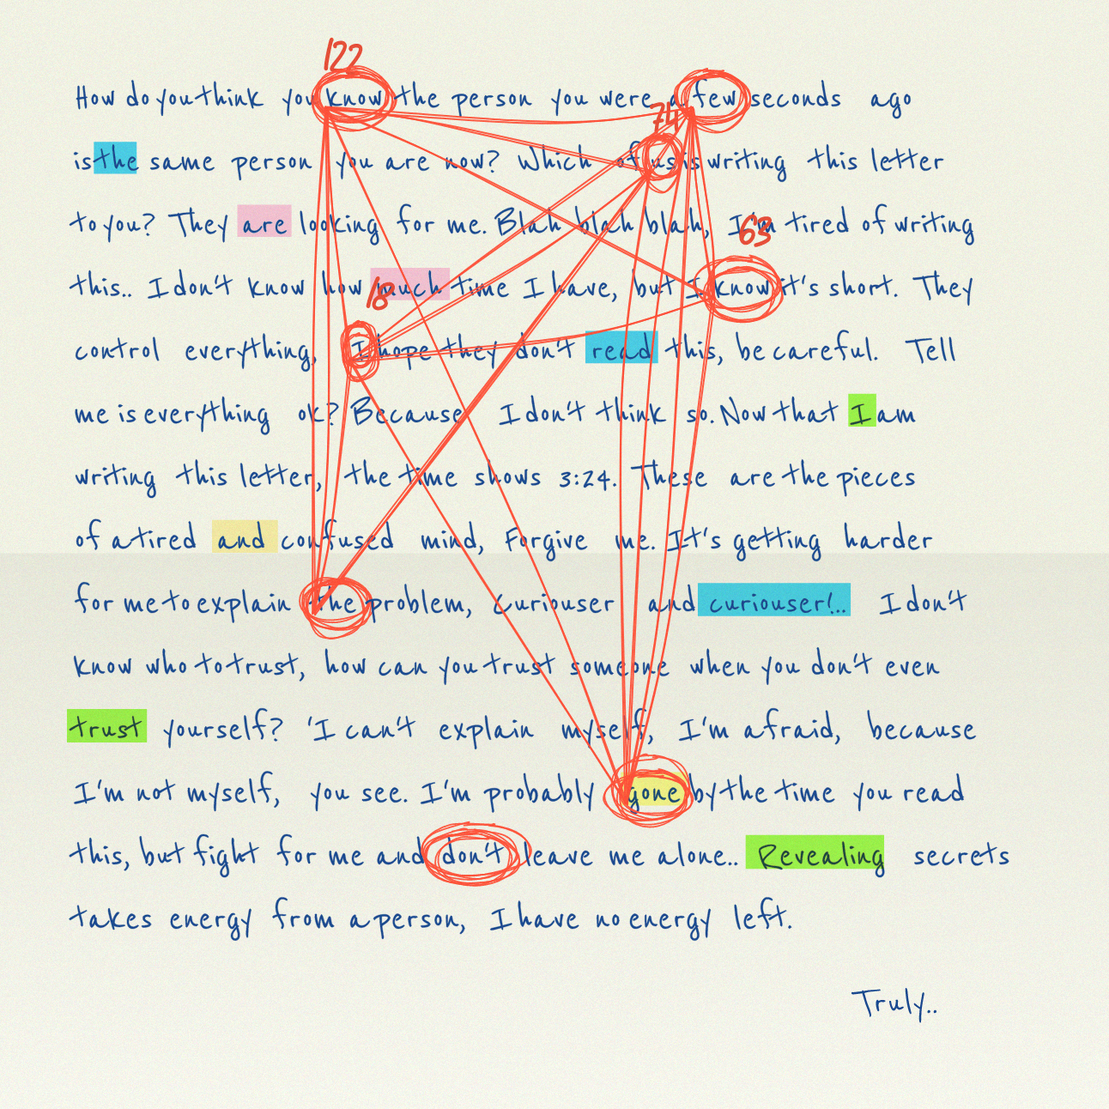 122
How do you think you know the person you were a few seconds ago
74
is the same person you are now? Which of us is writing this letter
to you? They are looking for me. Blah blah blah, I'm tired of writing
63
this.. I don't know how much time I have, but I know it's short. They
18
control everything, I hope they don't read this, be careful. Tell
me is everything ok? Because I don't think so. Now that I am
writing this letter, the time shows 3:24. These are the pieces
of a tired and confused mind, Forgive me. It's getting harder
for me to explain the problem, curiouser and curiouser!.. I don't
know who to trust, how can you trust someone when you don't even
trust yourself? 'I can't explain myself, I'm afraid, because
I'm not myself, you see. I'm probably gone by the time you read
this, but fight for me and don't leave me alone.. Revealing secrets
takes energy from a person, I have no energy left.
Truly..